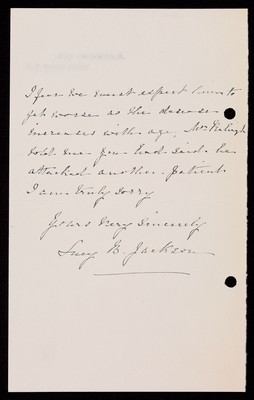 I fear we must expect him to
get worse as the disease
increases with age, Mrs
told me you had said he
attacked another patient
I am truly sorry
Yours very sincerely
Lucy B. Jackson